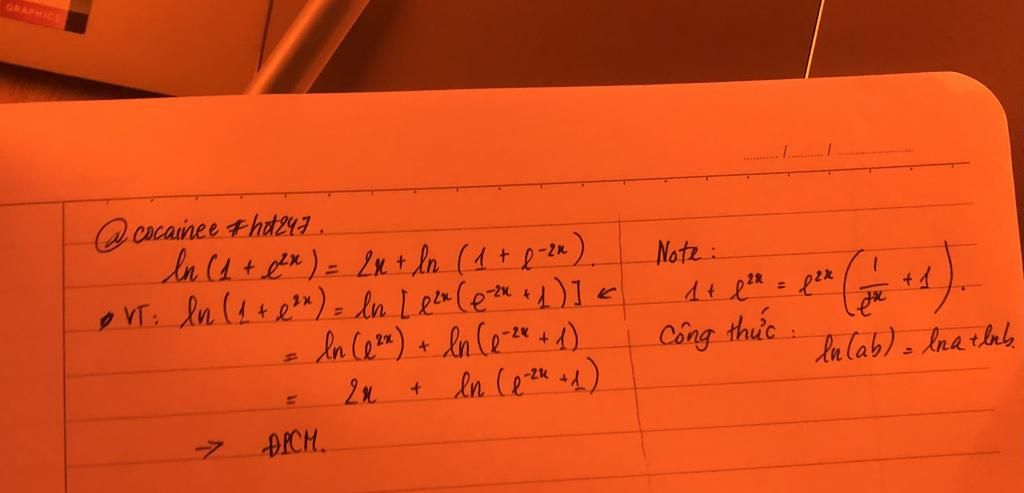 GRAPHICS
...... / ...... / ............
@cocainee #hot247.
ln(1 + e^{2x}) = 2x + ln (1 + e^{-2x}).
• VT: ln(1 + e^{2x}) = ln [e^{2x}(e^{-2x} + 1)] ←
= ln(e^{2x}) + ln(e^{-2x} + 1)
= 2x + ln (e^{-2x} + 1)
→ ĐPCM.
Note:
1 + e^{2x} = e^{2x} (1/e^{2x} + 1).
Công thức:
ln(ab) = lna + lnb.